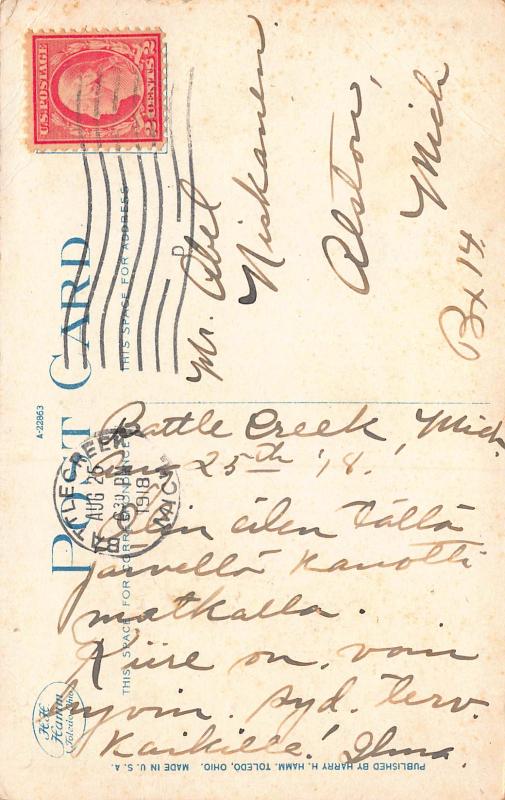 POST CARD
THIS SPACE FOR ADDRESS
THIS SPACE FOR CORRESPONDENCE
A-22863
U.S. POSTAGE
2 CENTS 2
BATTLE CREEK
AUG 26
630 PM
1918
MICH.
D
Mr. Abel
Niskanen.
Alston,
Mich
Bx 14.
Battle Creek, Mich
Aug 25th '18.
Olin eilen tällä
järvellä kanotti
matkalla.
Kiire on, voin
hyvin. Syd. terv.
Kaikille! Ilma.
H.H.
Hamm
Toledo, Ohio
PUBLISHED BY HARRY H. HAMM. TOLEDO, OHIO. MADE IN U. S. A.